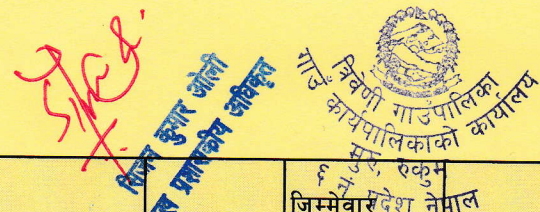 कुमार ओली
प्रशासकीय अधिकृत
त्रिवेणी गाउँपालिका
गाउँ कार्यपालिकाको कार्यालय
रुकुम
६ नं. प्रदेश नेपाल
जिम्मेवार